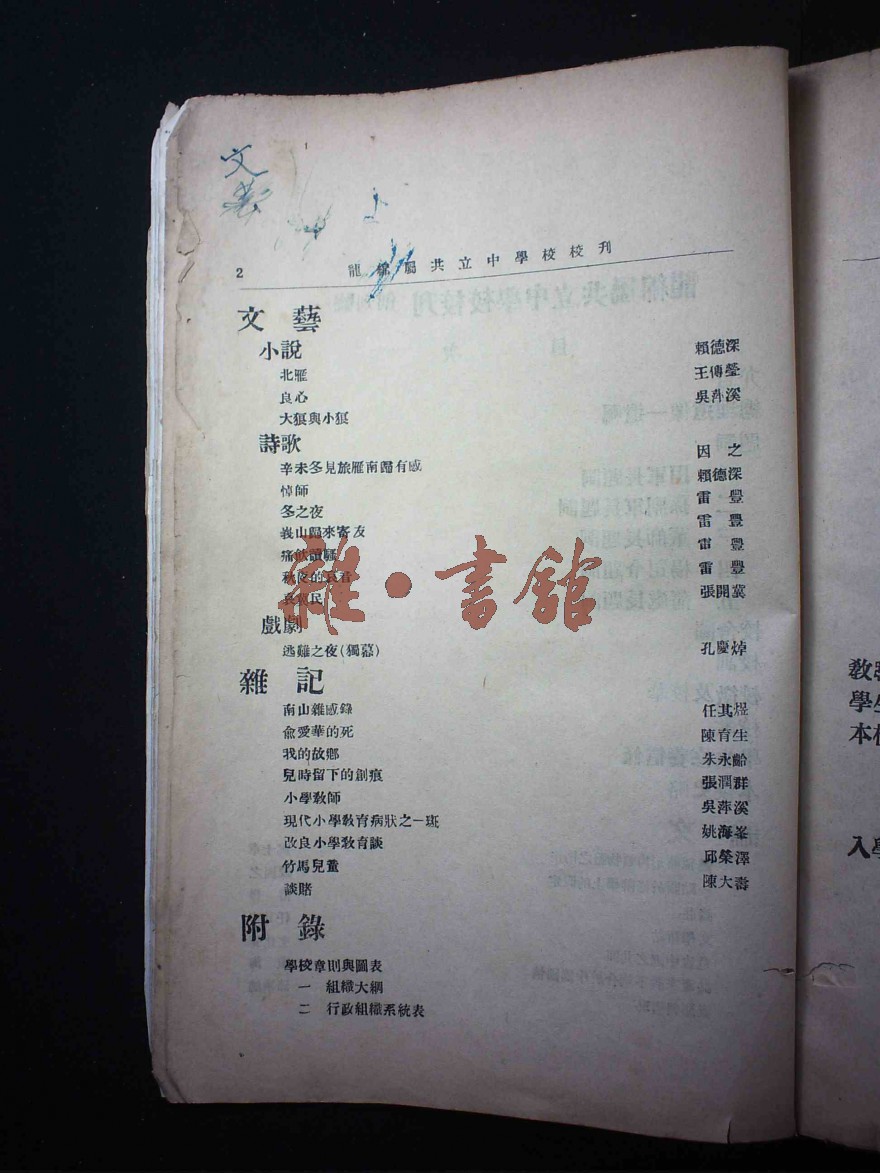 文
藝
2 龍 屬共立中學校校刊
文藝
小說
北雁 賴德深
良心 王傳瑩
大猳與小猳 吳萍溪
詩歌
辛未冬見旅雁南歸有感 因之
悼師 賴德深
冬之夜 雷豐
峩山歸來寄友 雷豐
痛飲讀騷 雷豐
秋夜的哀 雷豐
哀 民 張開冀
戲劇
逃難之夜(獨幕) 孔慶焯
雜記
南山雜感錄 任其煜
俞愛華的死 陳育生
我的故鄉 朱永齡
兒時留下的創痕 張潤群
小學教師 吳萍溪
現代小學教育病狀之一斑 姚海峯
改良小學教育談 邱榮澤
竹馬兒童 陳大壽
談賭
附錄
學校章則與圖表
一 組織大綱
二 行政組織系統表
雜·書館
教
學生
本校
入學